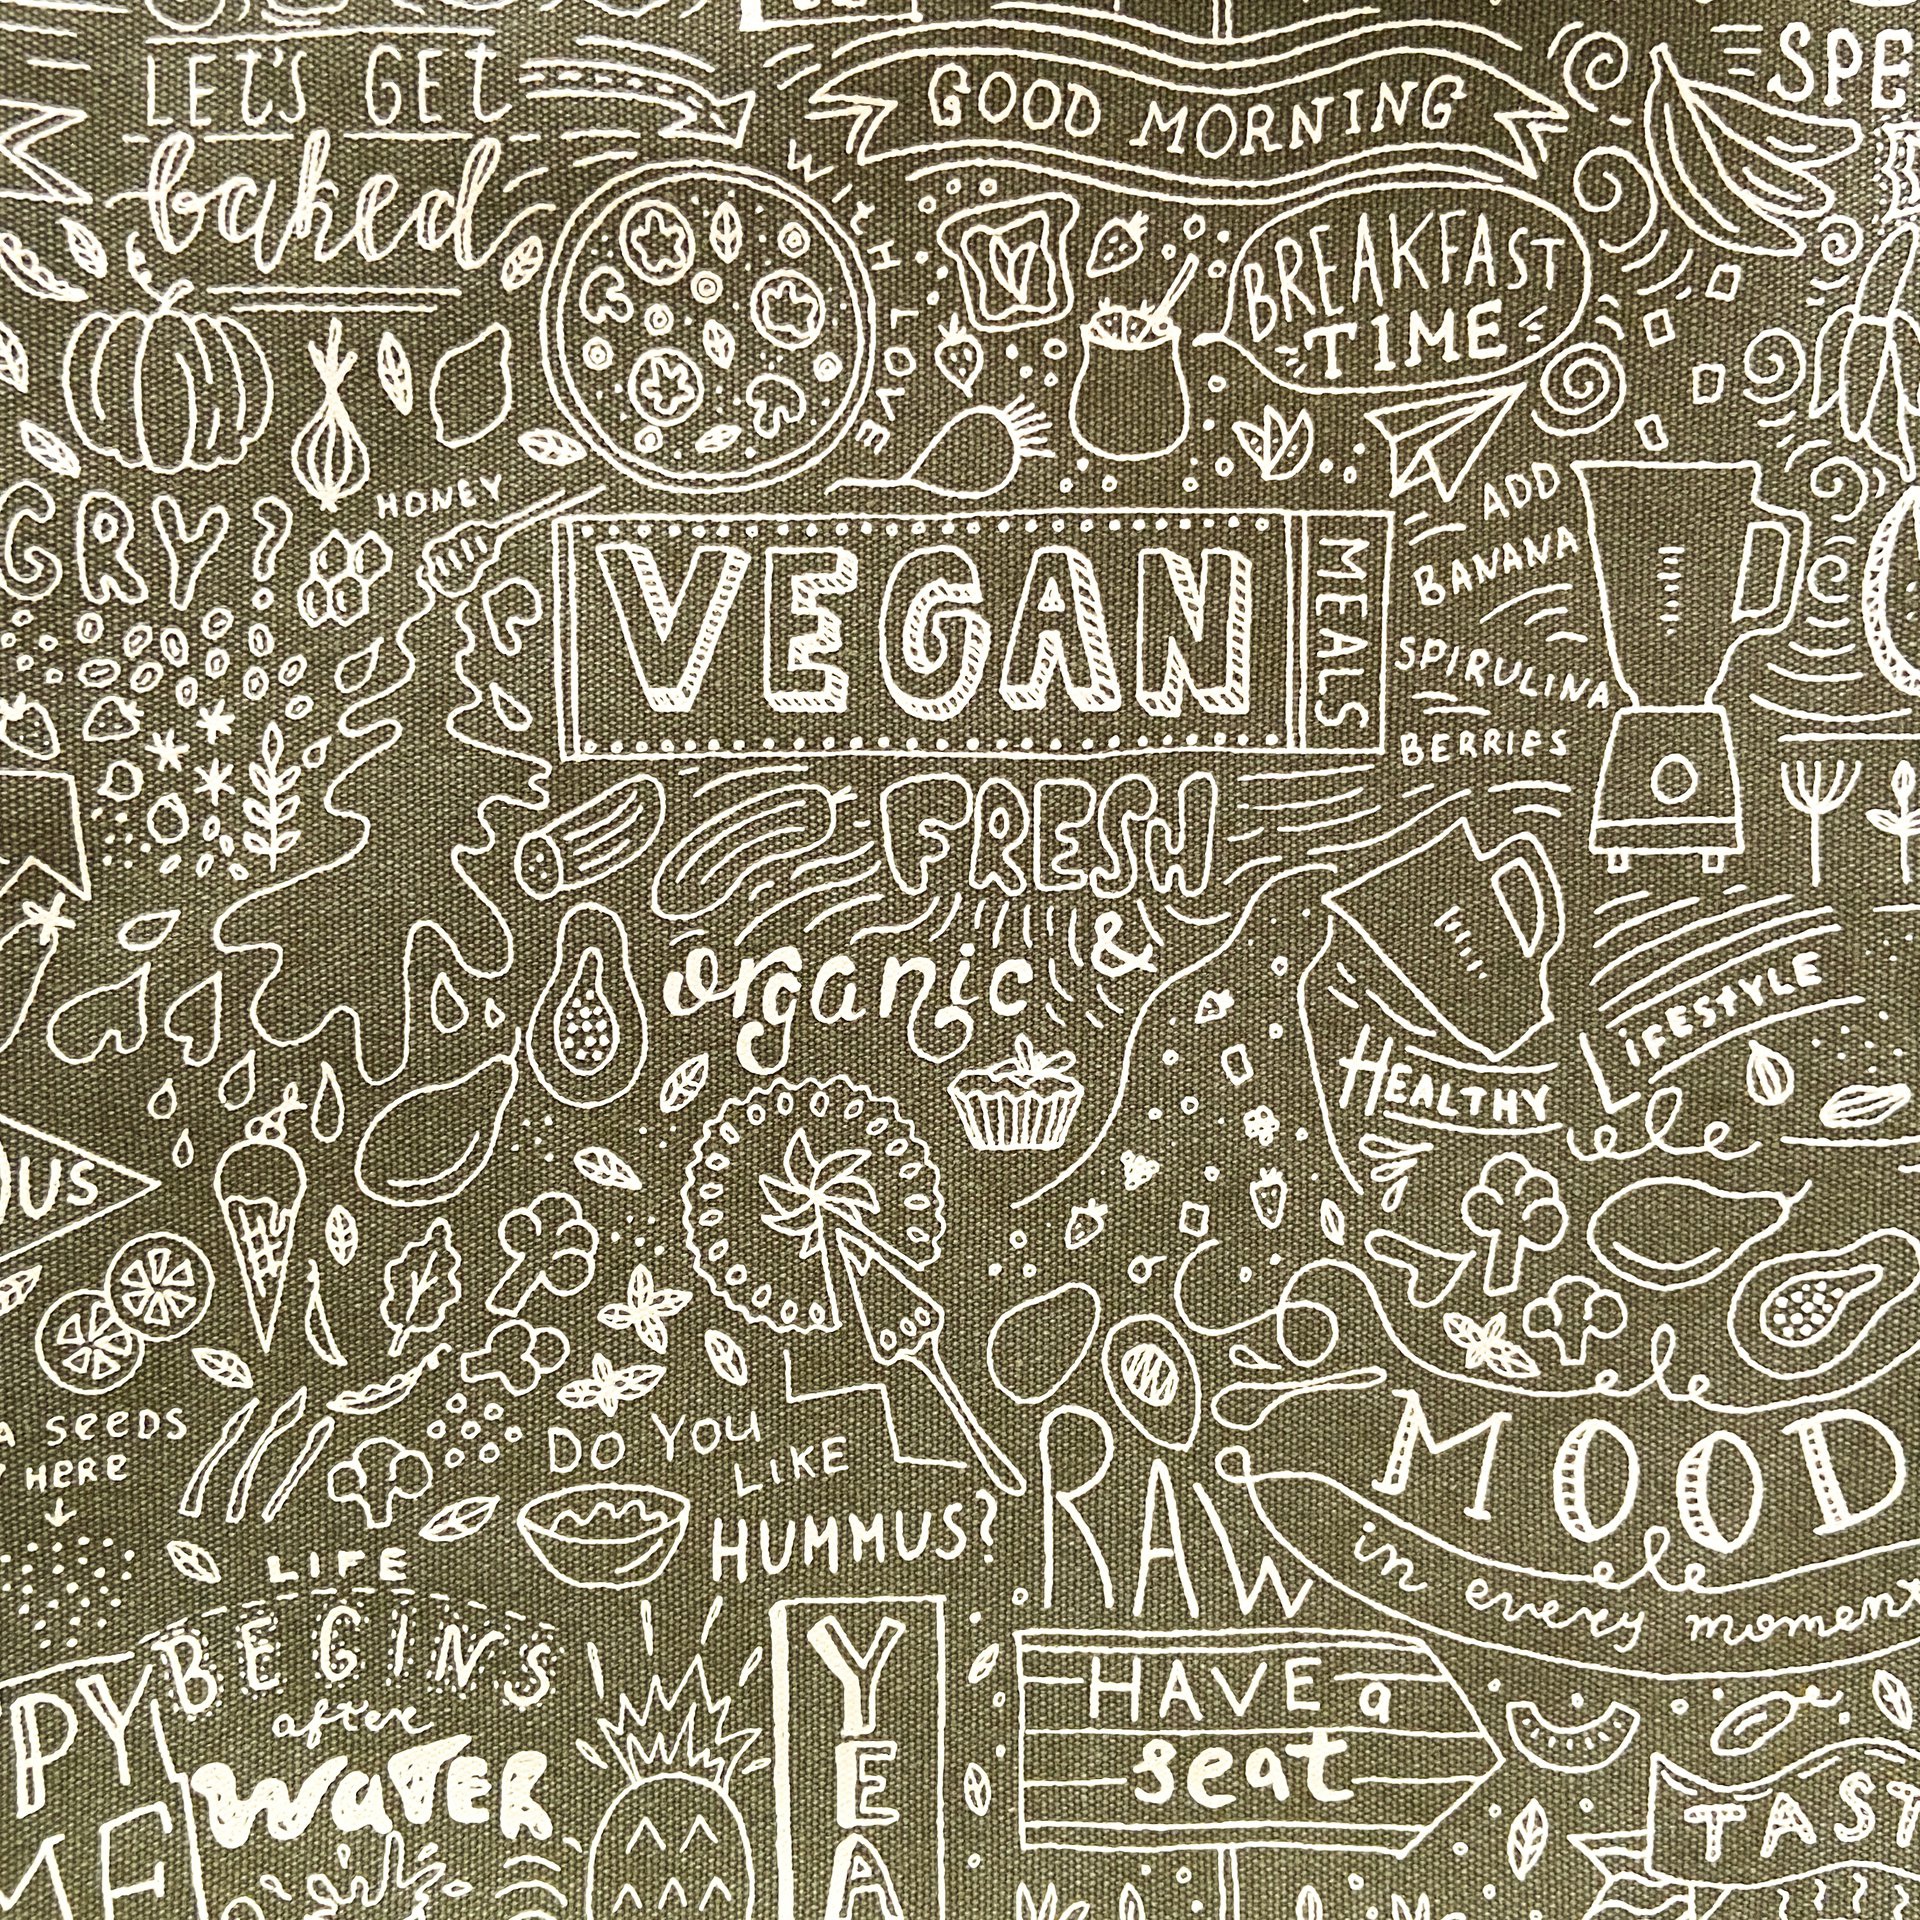 LET'S GET
baked
GOOD MORNING
WITH LOVE
BREAKFAST
TIME
GRY?
HONEY
VEGAN
MEALS
ADD
BANANA
SPIRULINA
BERRIES
FRESH
organic &
HEALTHY
LIFESTYLE
OUS
A SEEDS
HERE
DO YOU
LIKE
HUMMUS?
RAW
MOOD
in every moment
LIFE
BEGINS
after
WATER
PY
ME
YEA
HAVE a
seat
TAST
SPE